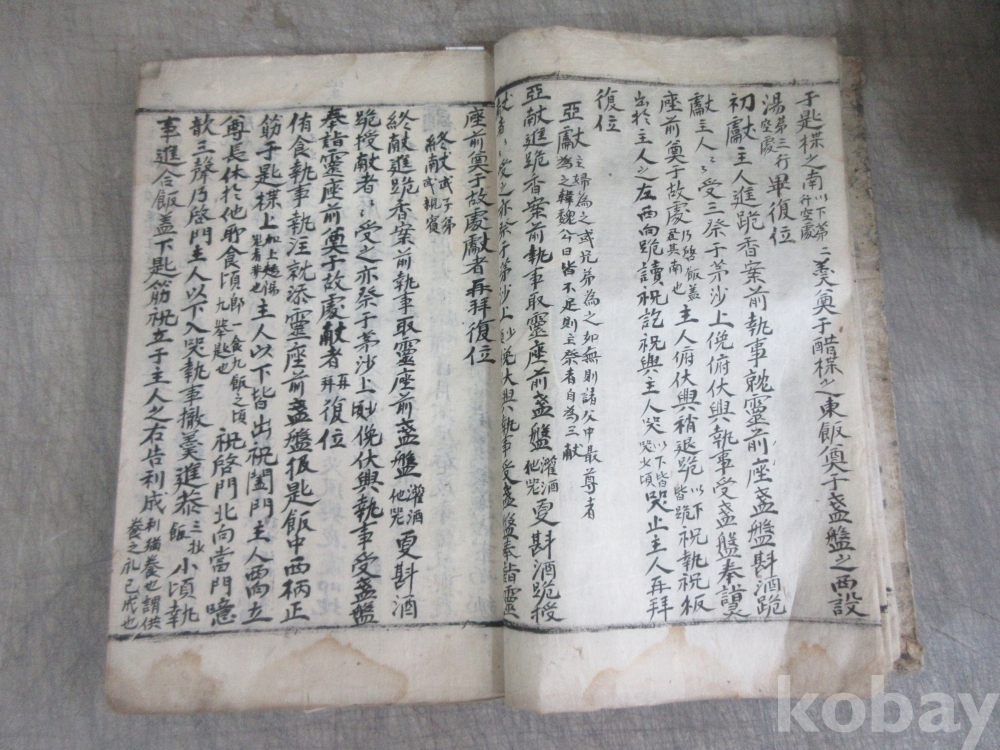 于匙楪之南以下第二行空處羹奠于醋楪之東飯奠于盞盤之西設
湯第三行空處畢復位
初獻主人進跪香案前執事就靈前座盞盤斟酒跪
獻主人〻受三祭于茅沙上俛俯伏興執事受盞盤奉詣
座前奠于故處是其南也乃啓飯盖主人俯伏興稍退跪以下皆跪祝執祝板
出於主人之左西向跪讀祝訖祝興主人哭以下皆哭少頃哭止主人再拜
復位
亞獻主婦為之或兄弟為之如無則諸父中最尊者
為之韓魏公曰皆不足則主祭者自為三献
亞獻進跪香案前執事取靈座前盞盤灌酒他器更斟酒跪授
獻者〻受之亦祭于茅沙上少傾俛伏興執事受盞盤奉詣靈
座前奠于故處獻者再拜復位
終献或子弟或親賓
終獻進跪香案前執事取靈座前盞盤灌酒他器更斟酒
跪授献者〻受之亦祭于茅沙上少傾俛伏興執事受盞盤
奉詣靈座前奠于故處献者再拜復位
侑食執事執注就添靈座前盞盤扱匙飯中西柄正
筯于匙楪上主人以下皆出祝闔門主人西向立
尊長休於他所食頃即一食九飯之頃九匙也祝啓門北向當門噫
歆三聲乃啓門主人以下入哭執事撤羹進茶三抄飯小頃執
事進合飯盖下匙筯祝立于主人之右告利成利猶養也謂供養之礼已成也
kobay